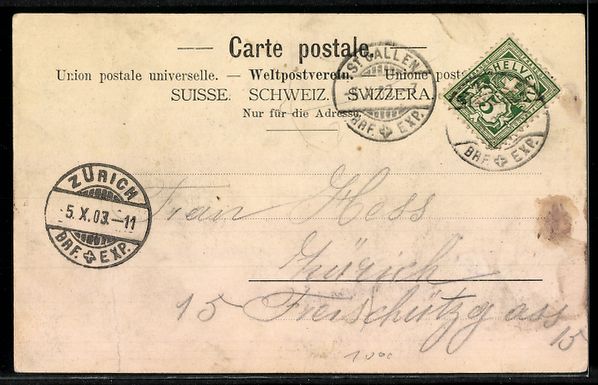 Carte postale.
Union postale universelle. — Weltpostverein. — Unione post
SUISSE. SCHWEIZ. SVIZZERA.
Nur für die Adresse.
ST. GALLEN
5. X. 03. - 7
BRF. EXP.
HELVETIA
5
BRF. EXP.
ZÜRICH
5. X. 03. - 11
BRF. EXP.
Frau Hess
Zürich
15 Freischützgass
15